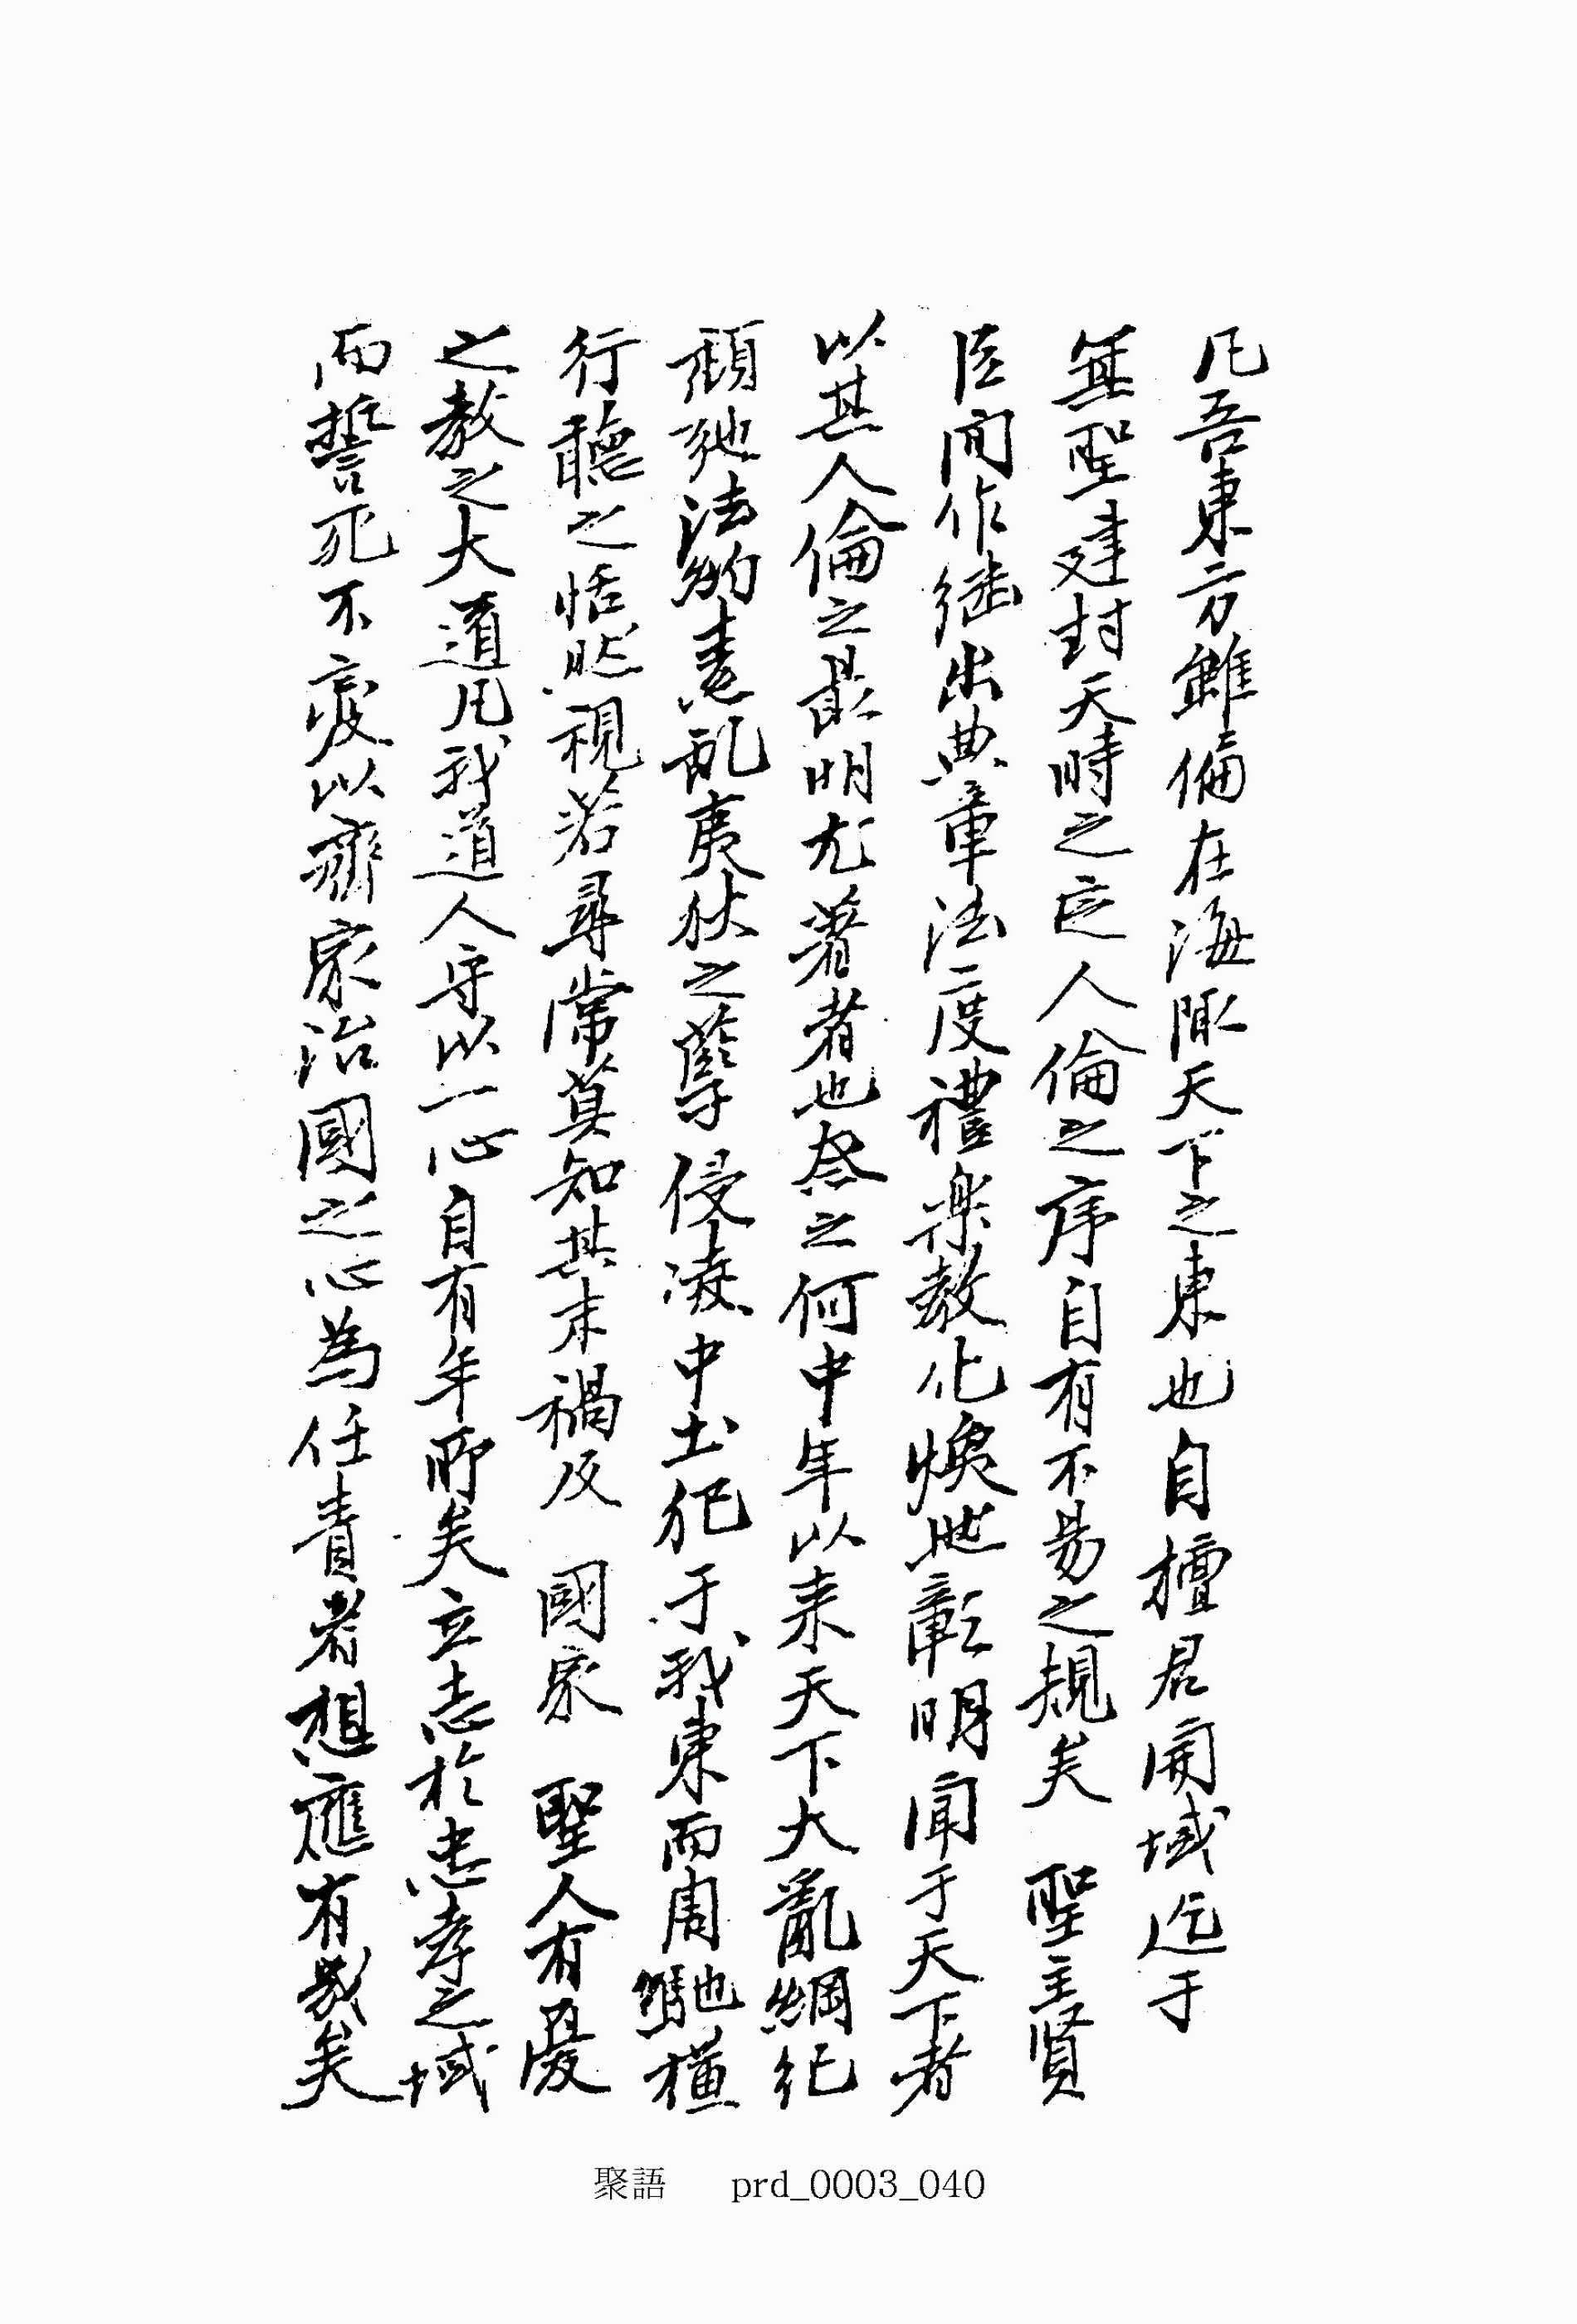 凡吾東方雖偏在海陬天下之東也自檀君開域迄于
無聖建封天時之定人倫之序自有不易之規矣 聖主賢
臣間作継出典章法度禮樂教化煥然彰明聞于天下者
以其人倫之最明尤著者也祭之何中年以来天下大亂綱紀
頹弛法約紊乱夷狄之孽侵凌中土犯于我東而周馳橫
行聽之恬然視若尋常莫知其末禍及 國家 聖人有憂
之教之大道凡我道人守以一心自有年所矣立志於忠孝之域
而誓死不変以齊家治國之心為任責者想應有幾矣
聚語 prd_0003_040